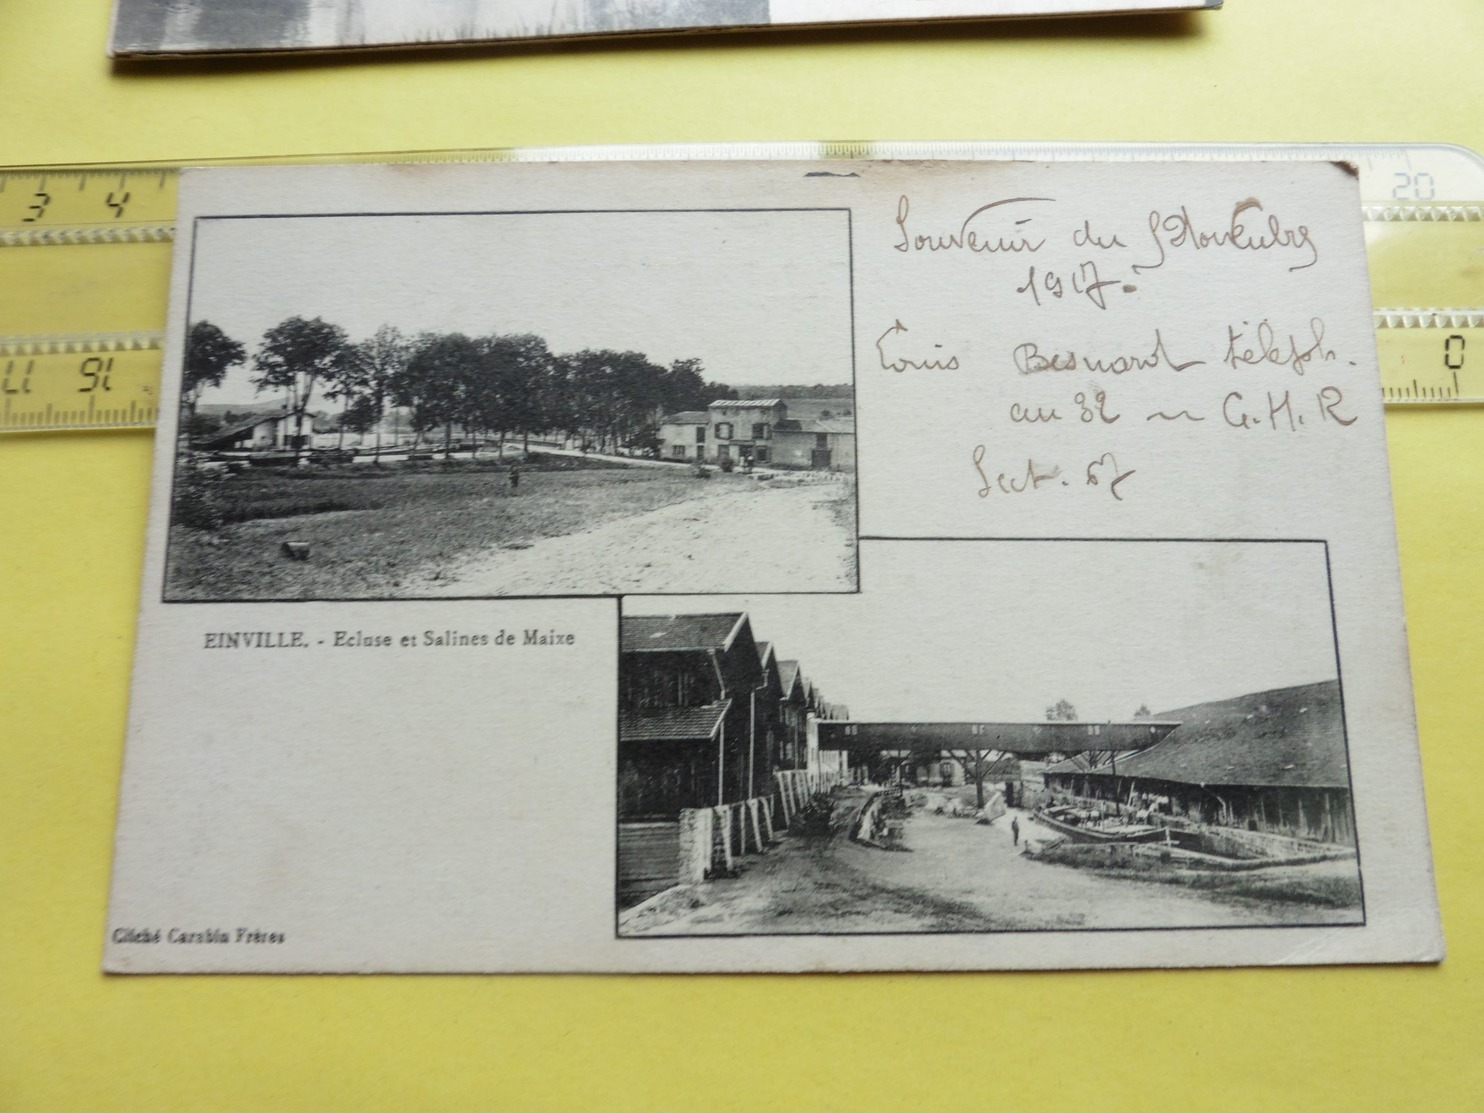 3 4
20
17 16
0
Souvenir du 9 Novembre
1917.
Louis Besnard téleph.
au 32 G.H.R
Sect. 67
EINVILLE. - Ecluse et Salines de Maixe
Cliché Carabin Frères